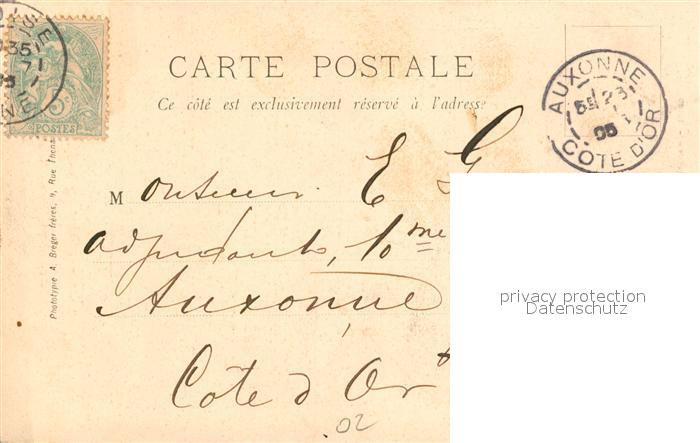 CARTE POSTALE
Ce côté est exclusivement réservé à l'adresse
AUXONNE
5E 23
05
COTE D'OR
5
POSTES
Monsieur E G
adjudant, 10me
Auxonne
Côte d'Or
02
Phototypie A. Breger frères, 9, Rue Thena
privacy protection
Datenschutz